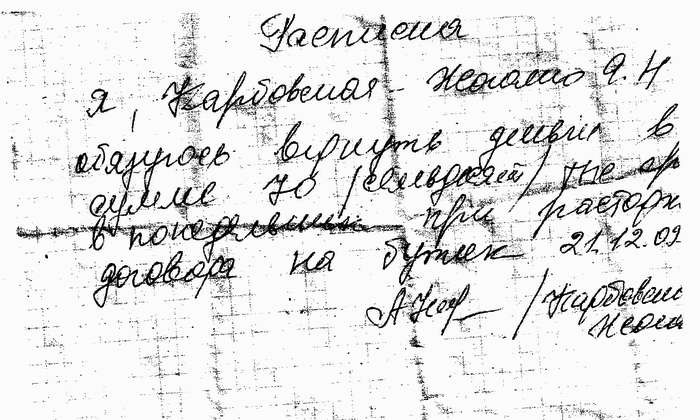 Расписка
Я, Карбовская - А. Н
обязуюсь вернуть деньги в
сумме 70 /семьдесят/ тыс
в понедельник при расторж
договора на бутик 21.12.09
/Карбовск